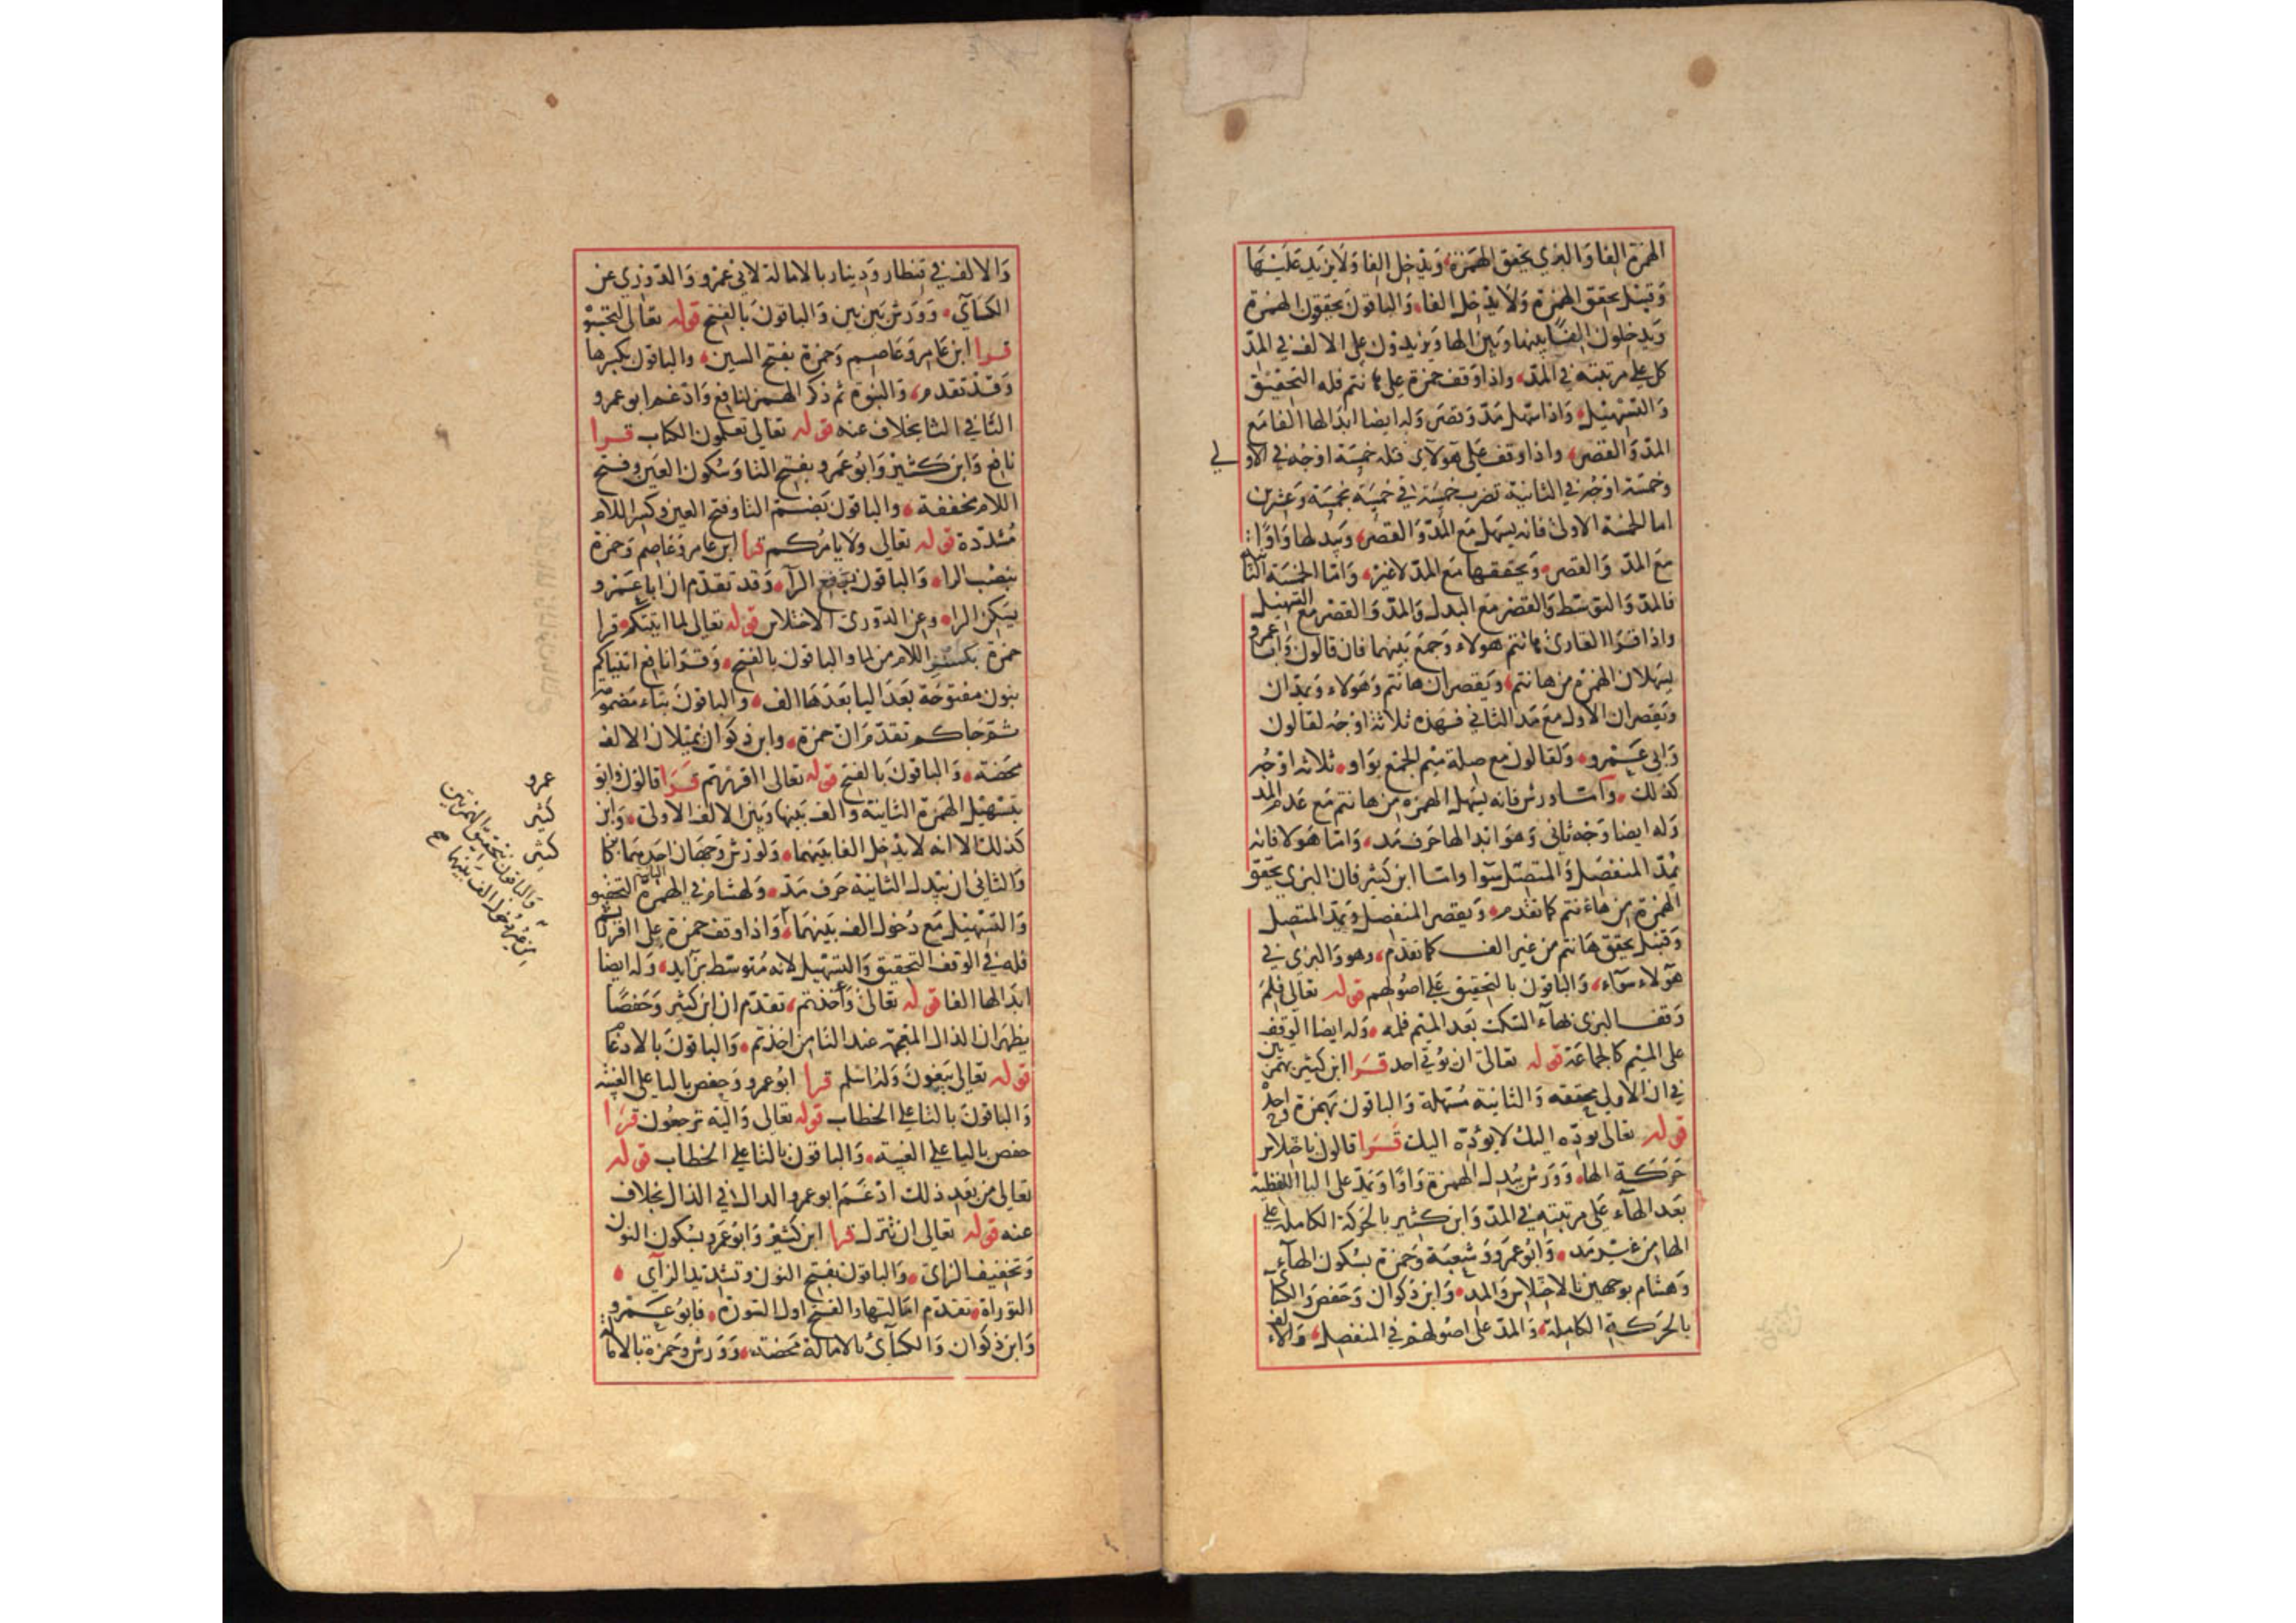 الهمزة الفا والبزي يحقق الهمزة ويدخل الفا ولا يزيد عليها
وقنبل يحقق الهمزة ولا يدخل الفا والباقون يحققون الهمزة
ويدخلون الفا بينها وبين الها ويزيدون على الالف في المد
كل على مرتبته في المد واذا وقف حمزة على هانتم فله التحقيق
والتسهيل واذا سهل مد وقصر وله ايضا ابدالها الفا مع
المد والقصر واذا وقف على هولاى فله خمسة اوجه في الاولى
وخمسة اوجه في الثانية تضرب خمسة في خمسة بخمسة وعشرين
اما الخمسة الاولى فانه يسهل مع المد والقصر ويبدلها واوا
مع المد والقصر ويحققها مع المد لاغير واما الخمسة الثا
فالمد والتوسط والقصر مع البدل والمد والقصر مع التسهيل
واذا قرا القارئ هانتم هولاء وجمع بينهما فان قالون وابا عمرو
يسهلان الهمزة من هانتم ويقصران هانتم وهولاء ويمدان
ويقصران الاول مع مد الثاني فهذه ثلاثة اوجه لقالون
وابي عمرو ولقالون مع صلة ميم الجمع بواو ثلاثة اوجه
كذلك واما ورش فانه يسهل الهمزه من هانتم مع عدم المد
وله ايضا وجه ثاني وهو ابدالها حرف مد واما هولا فانه
يمد المنفصل والمتصل سوا واما ابن كثير فان البزى يحقق
الهمزة من هاءنتم كما تقدم ويقصر المنفصل ويمد المتصل
وقنبل يحقق هانتم من غير الف كما تقدم وهو والبزى في
هولاء سواء والباقون بالتحقيق على اصولهم قوله تعالى فلم
وقف البزى بهاء السكت بعد الميم فلمه وله ايضا الوقف
على الميم كالجماعة قوله تعالى ان يوتى احد قرا ابن كثير بهمزتين
في ان الاولى محققه والثانية مسهلة والباقون بهمزة واحدة
قوله تعالى يوده اليك لا يوده اليك قرا قالون باختلاس
حركة الهاء وورش يبدل الهمزة واوا ويمد على اليا اللفظية
بعد الهاء على مرتبته في المد وابن كثير بالحركة الكاملة على
الها من غير مد وابو عمرو وشعبة وحمزة بسكون الهاء
وهشام بوجهين بالاختلاس والمد وابن ذكوان وحفص والكسا
بالحركة الكاملة والمد على اصولهم في المنفصل والالف
والالف في قنطار ودينار بالامالة لابي عمرو والدوري عن
الكسآي وورش بين بين والباقون بالفتح قوله تعالى لتحسبو
قرا ابن عامر وعاصم وحمزة بفتح السين والباقون بكسرها
وقد تقدم والنبوة ثم ذكر الهمز لنافع وادغم ابو عمرو
التا في الثا بخلاف عنه قوله تعالى تعلمون الكتاب قرا
نافع وابن كثير وابو عمرو بفتح التا وسكون العين وفتح
اللام مخففة والباقون بضم التا وفتح العين وكسر اللام
مشددة قوله تعالى ولا يامركم قرا ابن عامر وعاصم وحمزة
بنصب الرا والباقون برفع الرآ وقد تقدم ان ابا عمرو
يسكن الرا وعن الدورى الاختلاس قوله تعالى لما اتيتكم قرا
حمزة بكسر اللام من لما والباقون بالفتح وقرا نافع اتيناكم
بنون مفتوحة بعد اليا بعدها الف والباقون بتاء مضمومة
ثم جاكم تقدم ان حمزة وابن ذكوان يميلان الالف
محضة والباقون بالفتح قوله تعالى اقررتم قرا قالون وابو
بتسهيل الهمزة الثانية والف بينها وبين الالف الاولى وابن
كذلك الا انه لا يدخل الفا بينهما ولورش وجهان احدهما كابن
والثاني ان يبدل الثانية حرف مد ولهشام في الهمزة الثانية التحقيق
والتسهيل مع دخول الف بينهما واذا وقف حمزة على اقررتم
فله في الوقف التحقيق والتسهيل لانه متوسط بزايد وله ايضا
ابدالها الفا قوله تعالى وأخذتم تقدم ان ابن كثير وحفصا
يظهران الذال المعجمة عند التا من اخذتم والباقون بالادغا
قوله تعالى يبغون وله اسلم قرا ابو عمرو وحفص باليا على الغيبة
والباقون بالتا على الخطاب قوله تعالى واليه ترجعون قرا
حفص باليا على الغيبة والباقون بالتا على الخطاب قوله
تعالى من بعد ذلك ادغم ابو عمرو الدال في الذال بخلاف
عنه قوله تعالى ان تنزل قرا ابن كثير وابو عمرو بسكون النون
وتخفيف الزاى والباقون بفتح النون وتشديد الزاي
التوراة تقدم امالتها والفتح اول السورة فابو عمرو
وابن ذكوان والكسآئ بالامالة محضة وورش وحمزة بالاما
عمرو
كثير
كثير
والباقون بتحقيق الهمزتين
من غير دخول الف بينهما صح